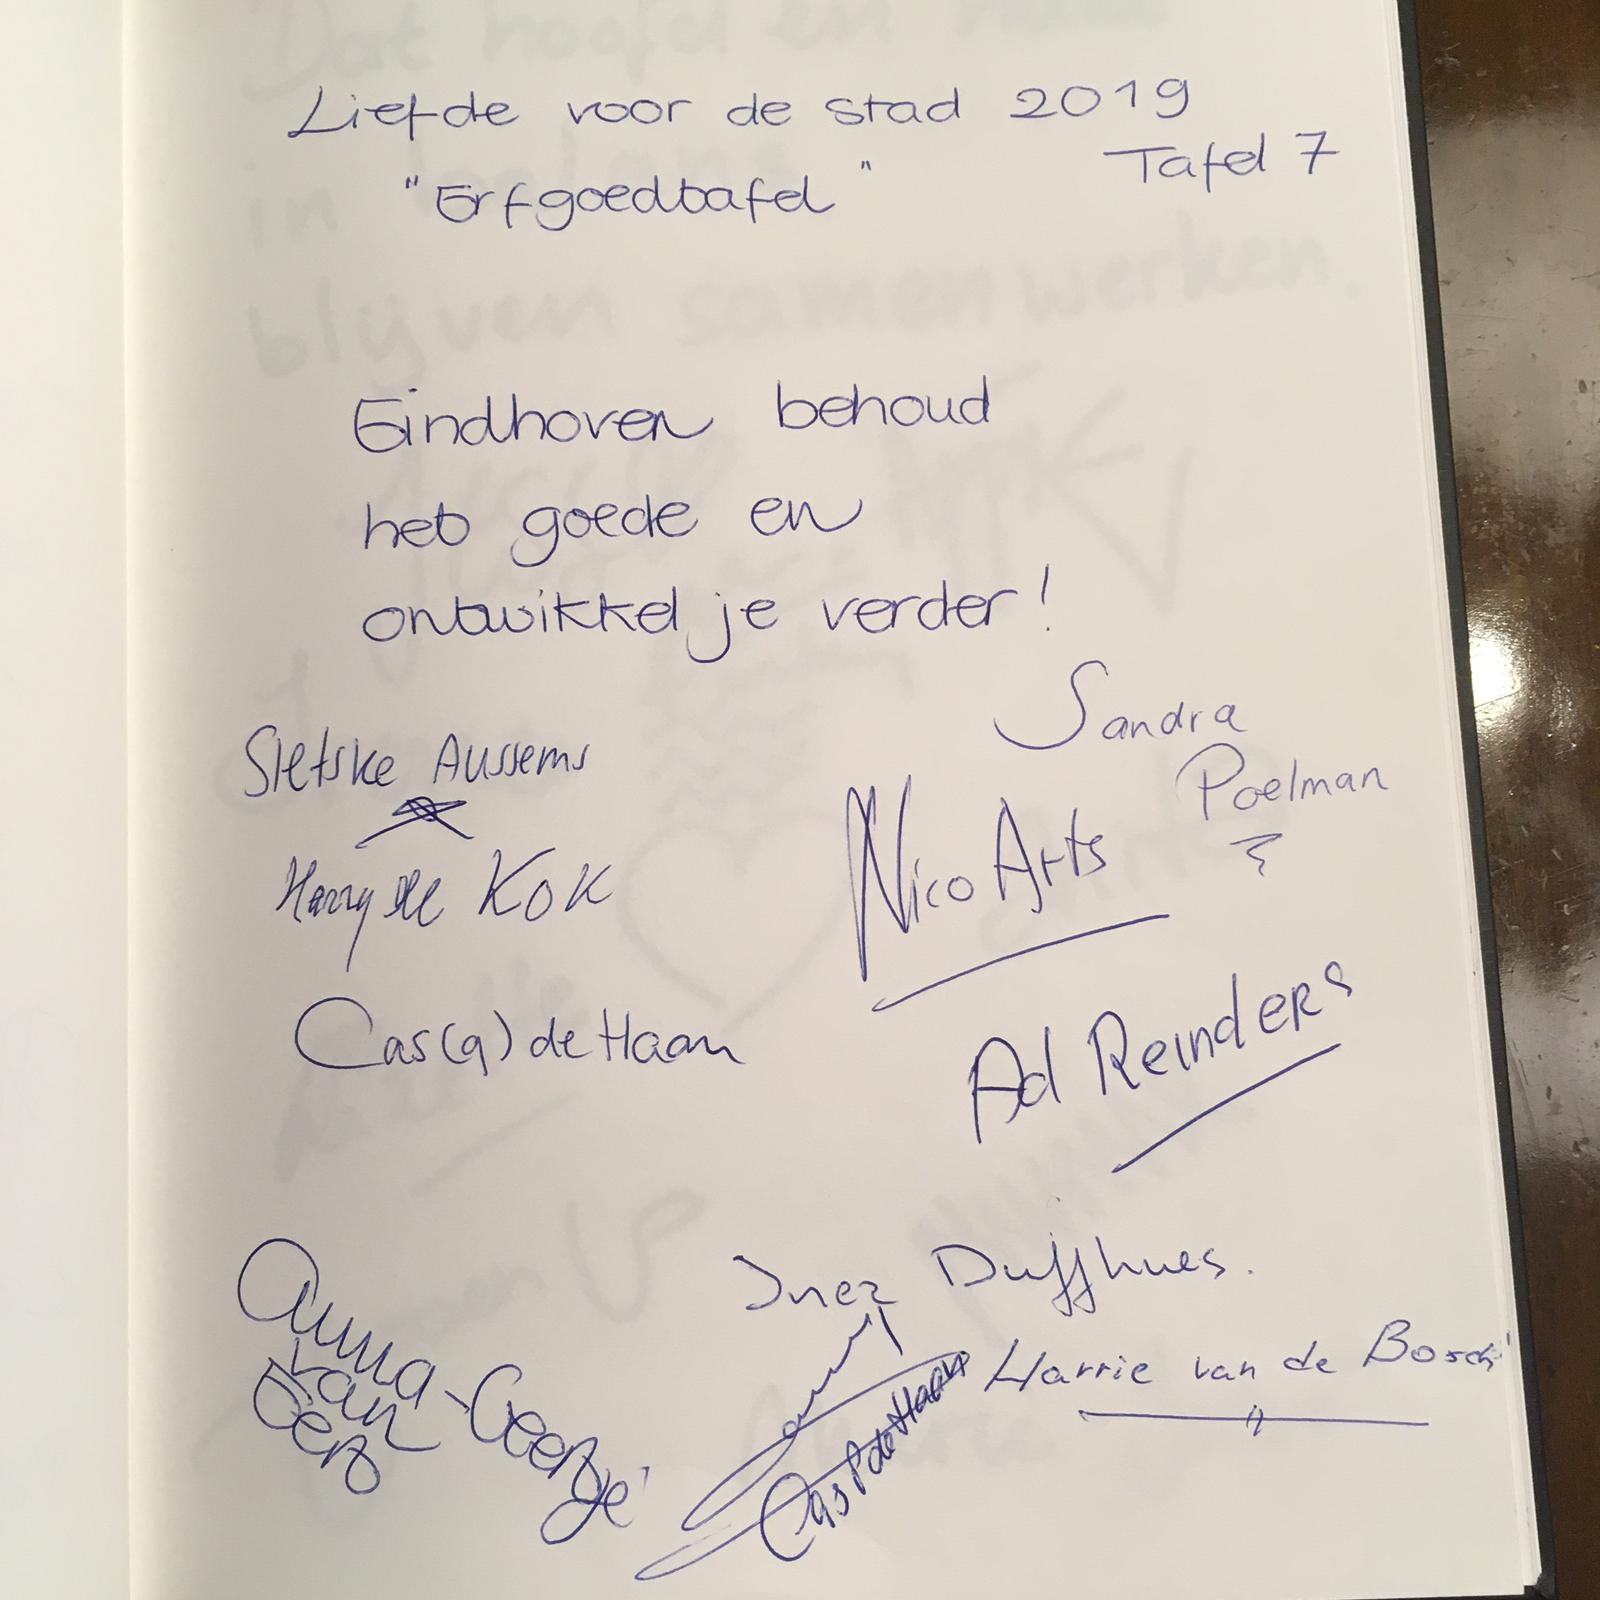 Liefde voor de stad 2019
Tafel 7
"Erfgoedtafel"
Eindhoven behoud
het goede en
ontwikkel je verder!
Sandra
Poelman
Sietske Aussems
Nico Arts
Harry de Kok
Cas(a) de Haan
Ad Reinders
Inez Duffhues.
Anna-Geertje
van
Gerb
Harrie van de Bosch
Cas P de Haan
blijven samenwerken.